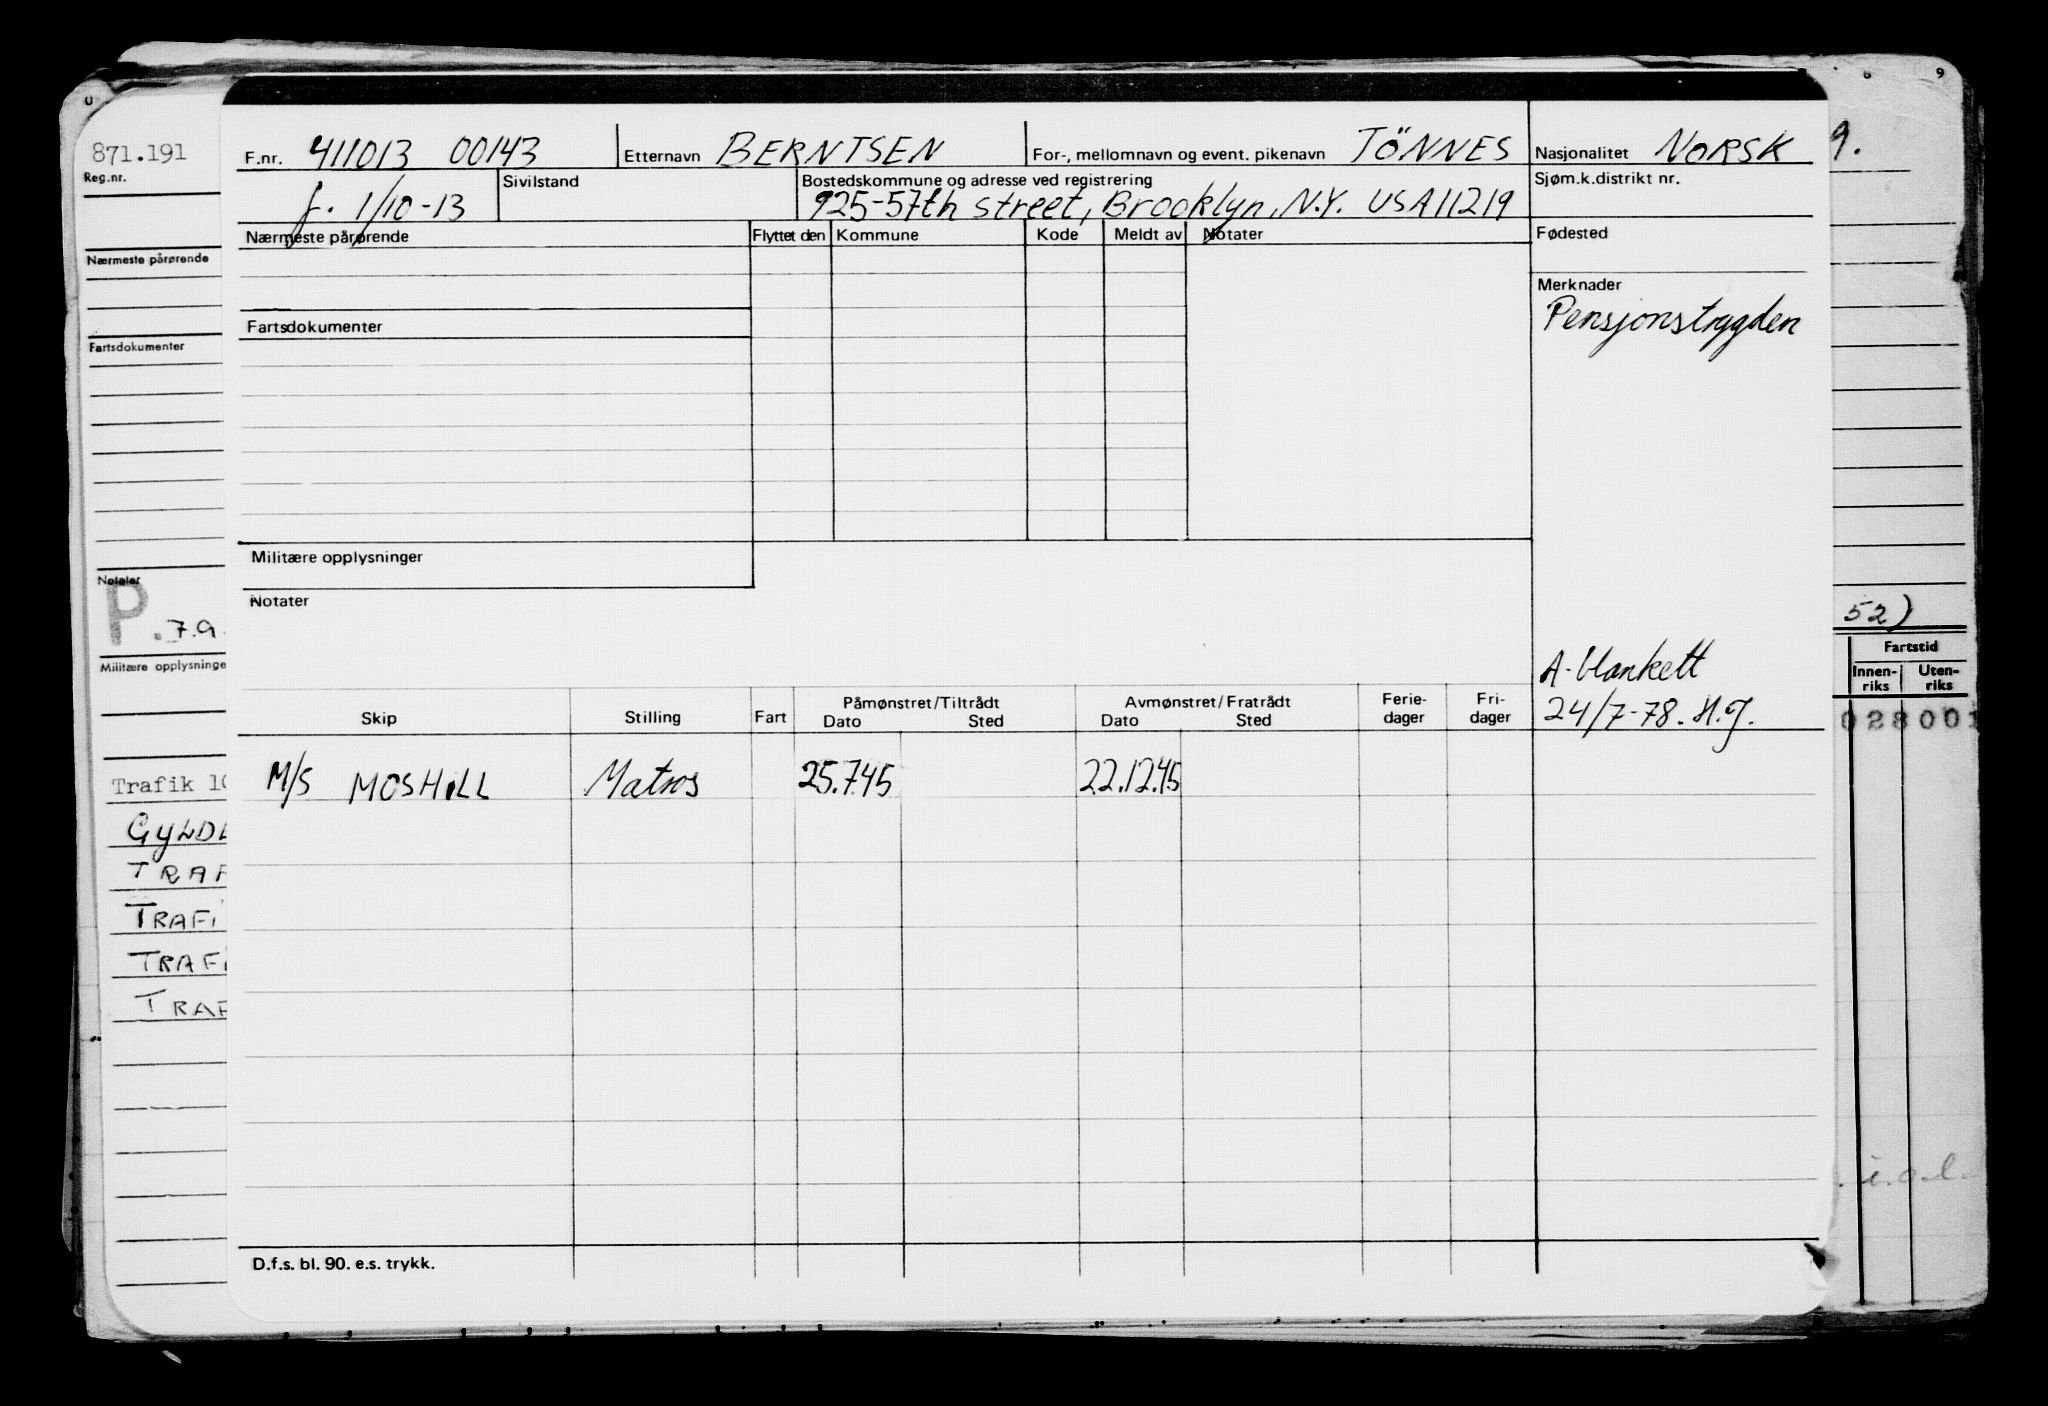 871.191
Reg.nr.
Nærmeste pårørende
Fartsdokumenter
Notater
P. 7.9.
Militære opplysninge
Trafik 10
GYLDL
TRAF
TRAFI
TRAFI
TRAF
F.nr. 411013 00143 Etternavn BERNTSEN For-, mellomnavn og event. pikenavn TÖNNES Nasjonalitet NORSK
f. 1/10-13 Sivilstand Bostedskommune og adresse ved registrering Sjøm.k.distrikt nr.
925-57th street, Brooklyn, N.Y. USA 11219
Nærmeste pårørende Flyttet den Kommune Kode Meldt av Notater Fødested
Merknader
Fartsdokumenter Pensjonstrygden
Militære opplysninger
Notater
A-blankett
24/7-78. H.J.
Skip Stilling Fart Påmønstret/Tiltrådt Dato Sted Avmønstret/Fratrådt Dato Sted Ferie-dager Fri-dager
M/S MOSHILL Matros 25.7.45 22.12.45
D.f.s. bl. 90. e.s. trykk.
8 9
9.
52)
Fartstid
Innen-riks Uten-riks
028001
i.o.l.